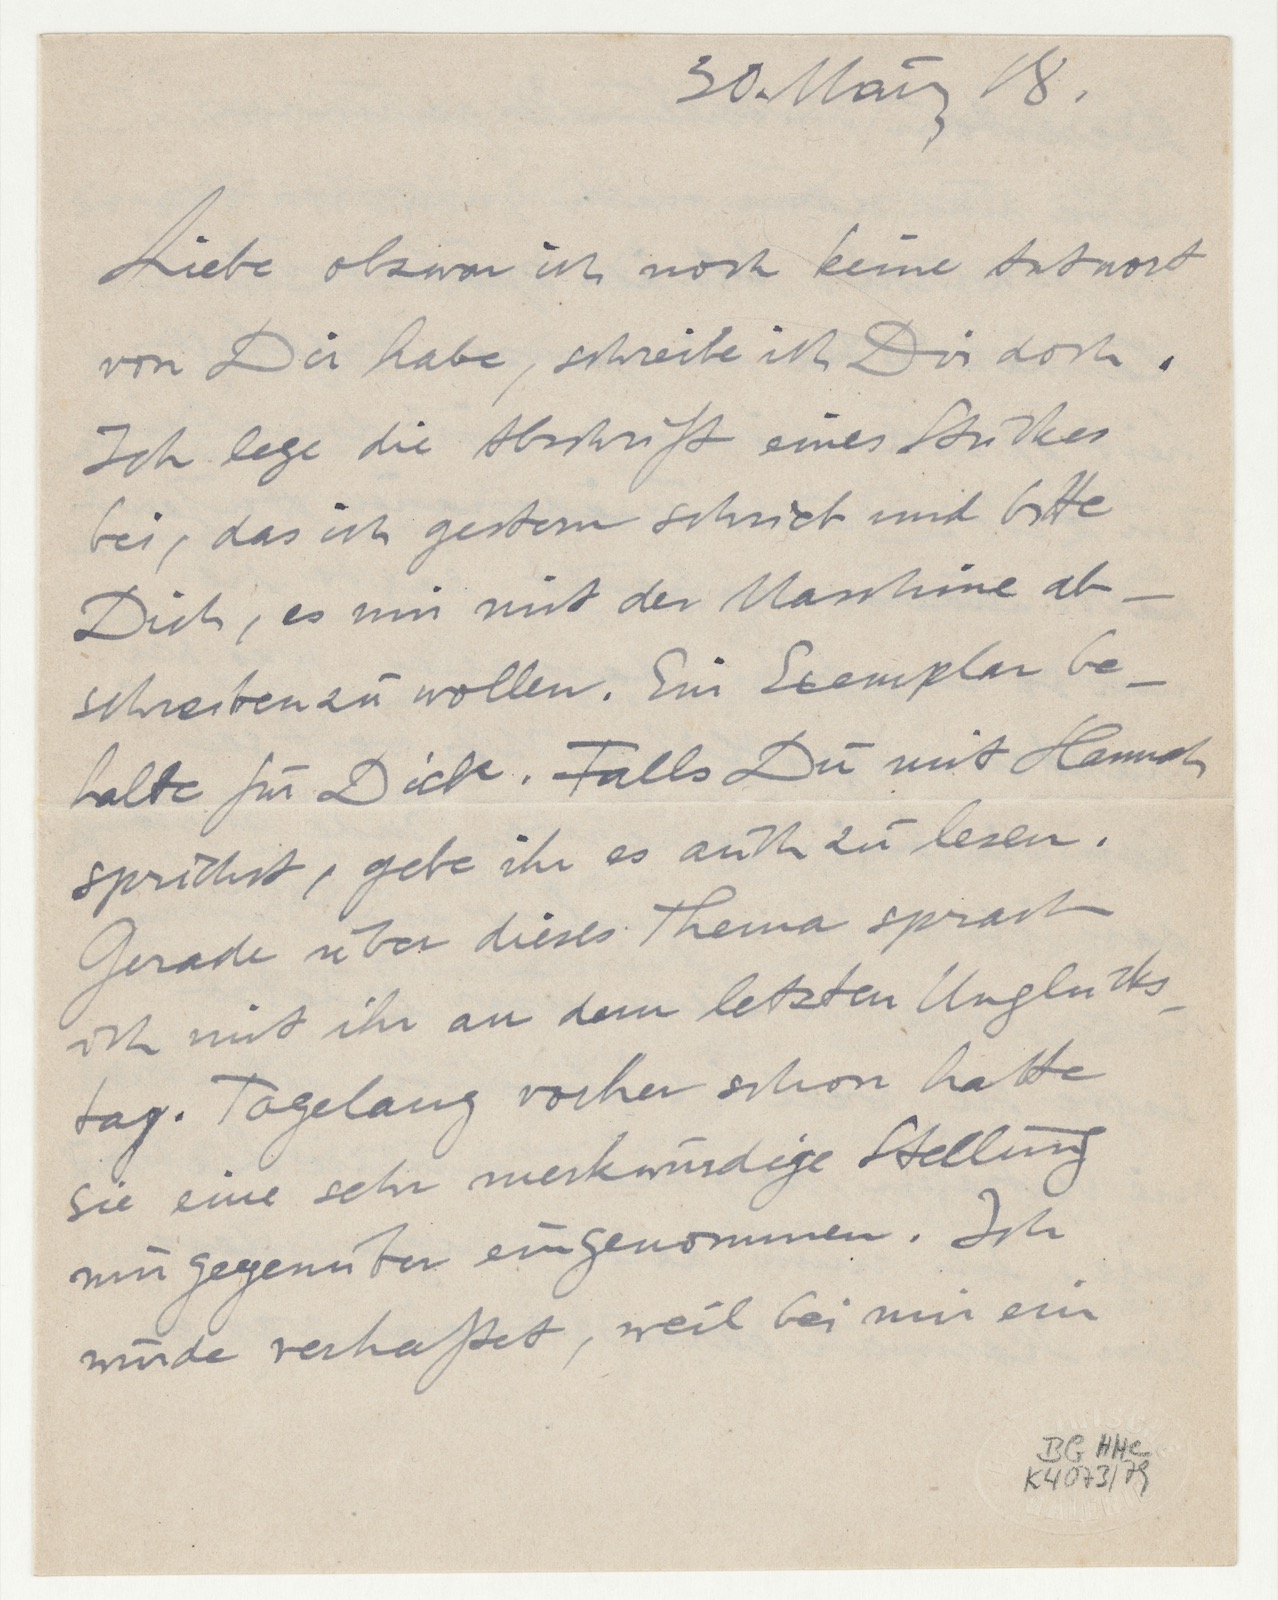 30. März 18.
Liebe obzwar ich noch keine Antwort
von Dir habe, schreibe ich Dir doch.
Ich lege die Abschrift eines Stückes
bei, das ich gestern schrieb und bitte
Dich, es mir mit der Maschine ab-
schreiben zu wollen. Ein Exemplar be-
halte für Dich. Falls Du mit Hannah
sprichst, gebe ihr es auch zu lesen.
Gerade über dieses Thema sprach
ich mit ihr an dem letzten Unglücks-
tag. Tagelang vorher schon hatte
sie eine sehr merkwürdige Stellung
mir gegenüber eingenommen. Ich
würde verhaftet, weil bei mir ein
BG HHC
K4073/79